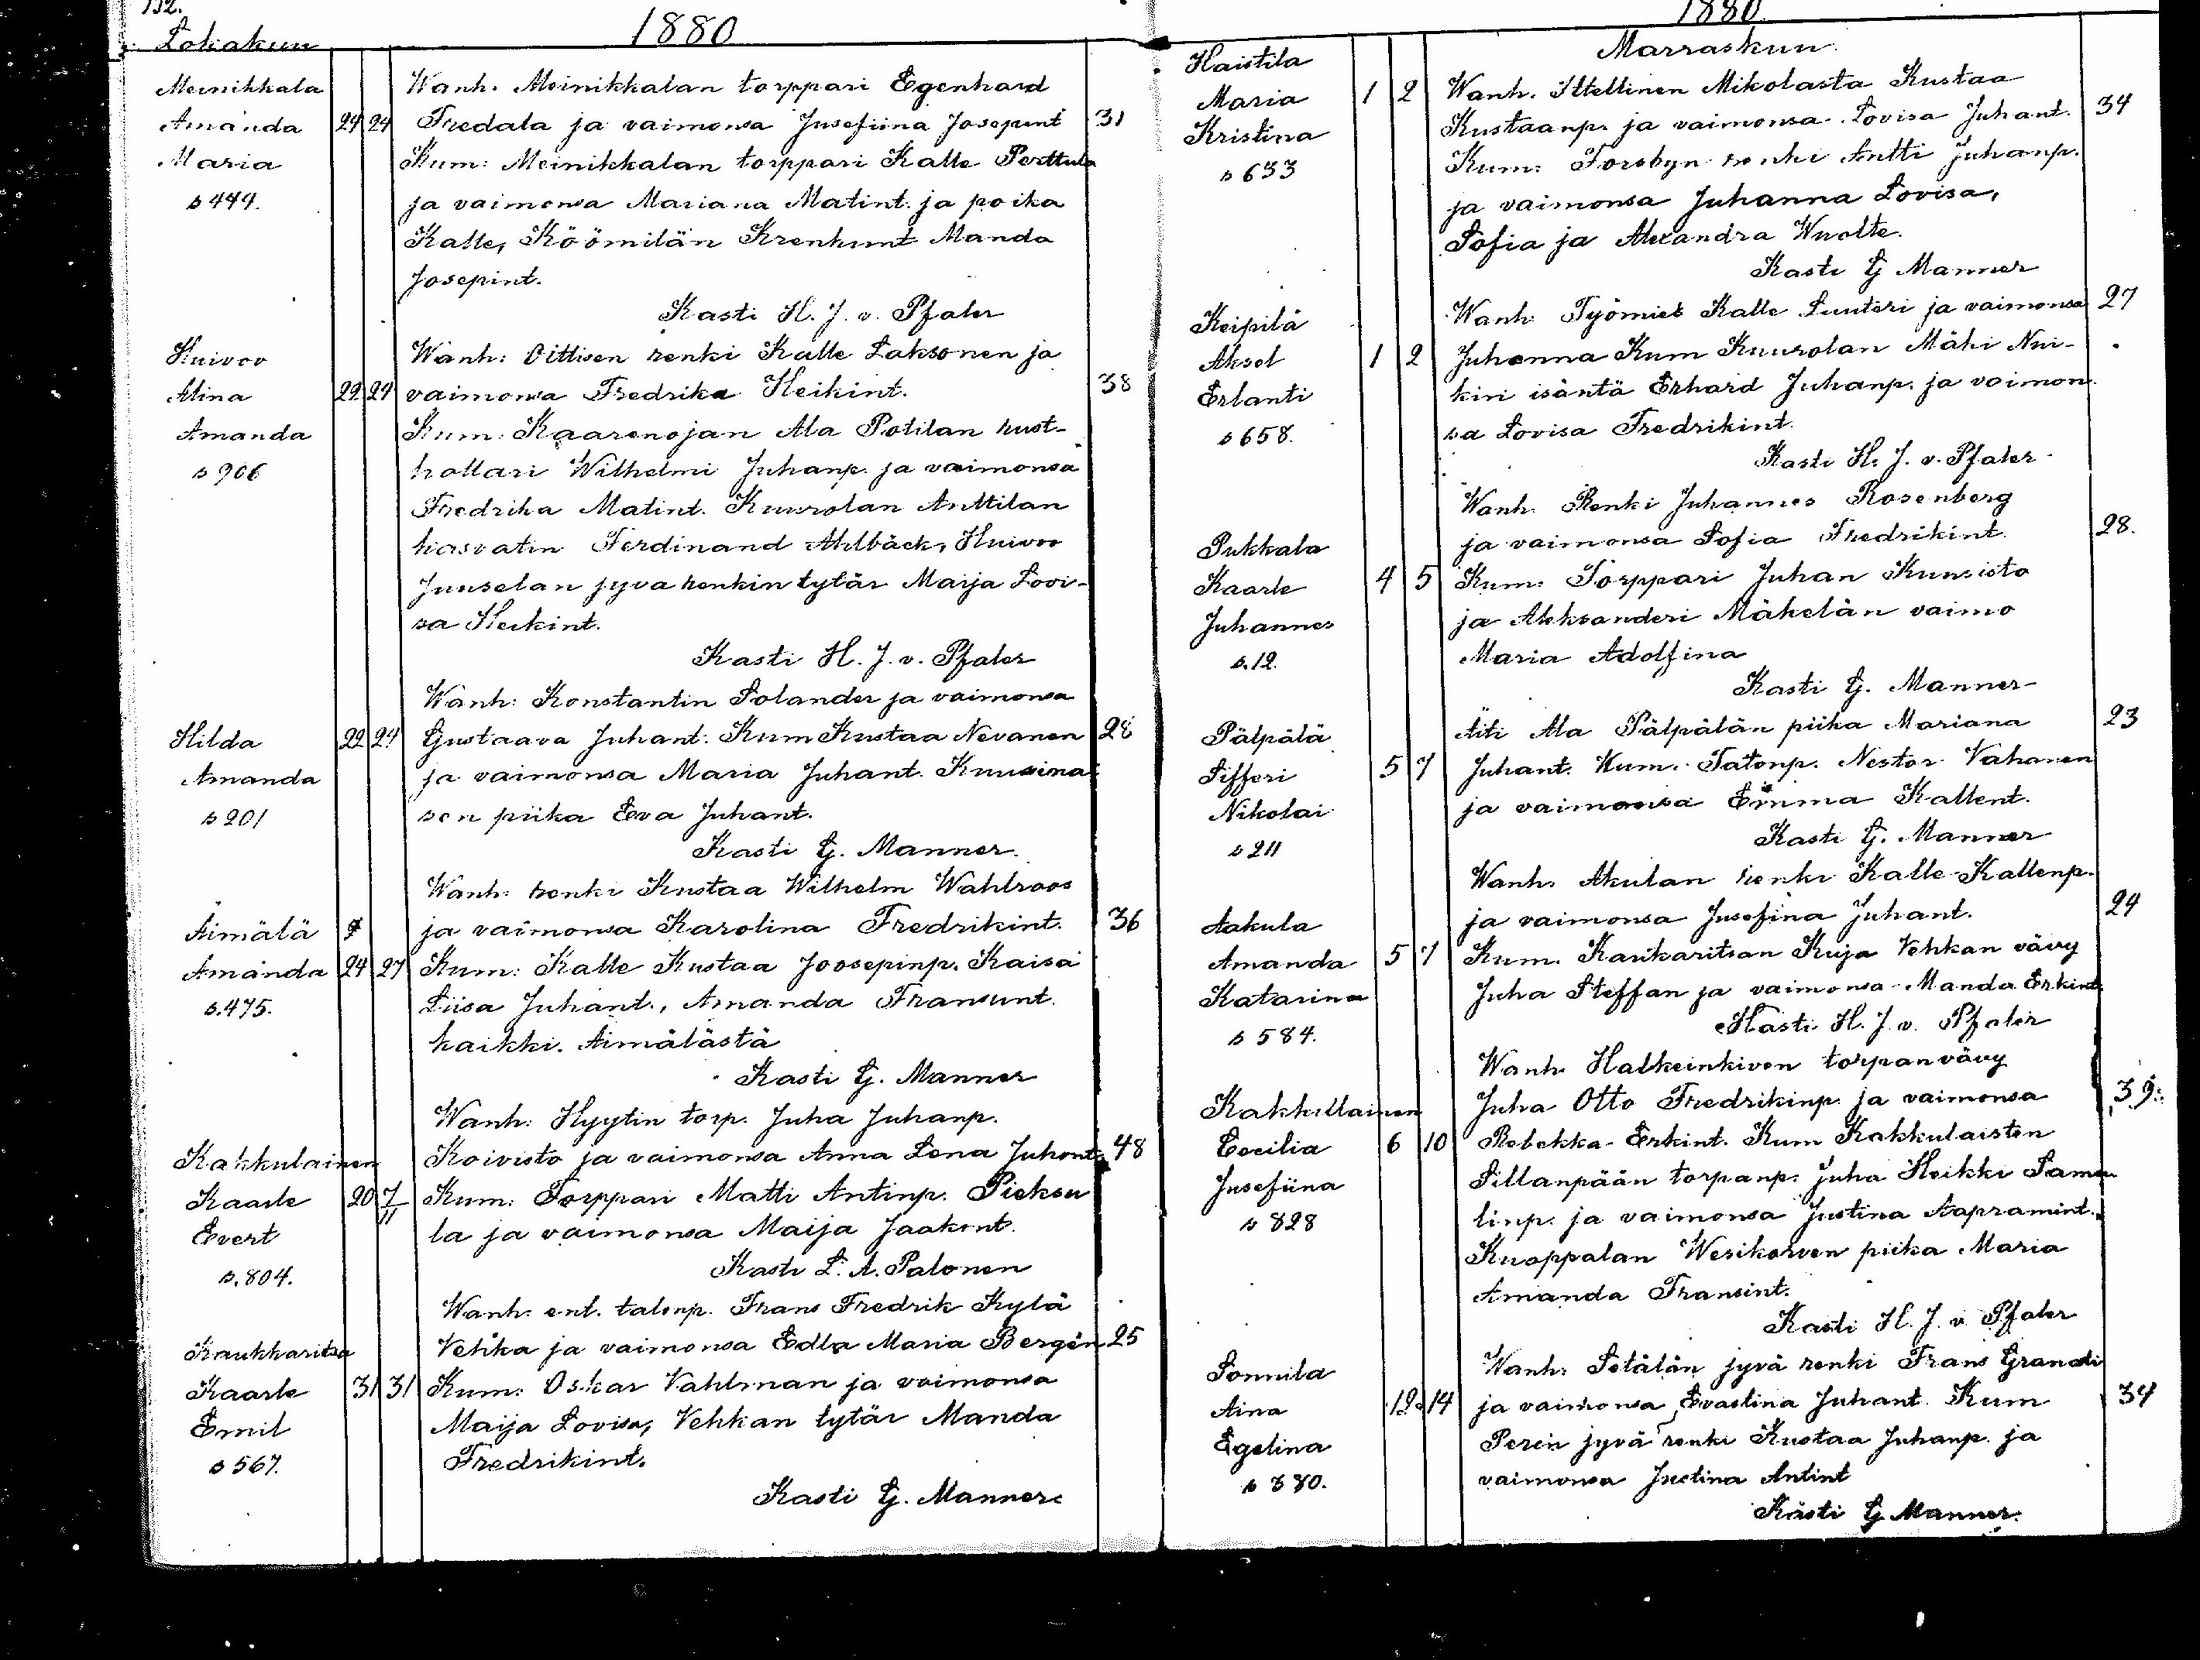 132.
1880
Lokakun
Meinikkala
Amanda 24 24
Maria
s 444.
Wanh. Meinikkalan torppari Egenhard
Fredala ja vaimonsa Jusefiina Josepint 31
Kum: Meinikkalan torppari Kalle Perttula
ja vaimonsa Mariana Matint. ja poika
Kalle, Köömilän Krenkunt Manda
Josepint.
Kasti H. J. v. Pfaler
Huivoo
Alina 22 24
Amanda
s 906
Wanh: Oittisen renki Kalle Laksonen ja
vaimonsa Fredrika Heikint. 38
Kum: Kaarenojan Ala Potilan rust-
hollari Wilhelmi Juhanp. ja vaimonsa
Fredrika Matint. Kuurolan Anttilan
kasvatin Ferdinand Ahlbäck, Huivoo
Juuselan jyvä renkin tytär Maija Lovi-
sa Heikint.
Kasti H. J. v. Pfaler
Hilda 22 24
Amanda
s 201
Wanh: Konstantin Solander ja vaimonsa
Gustaava Juhant: Kum Kustaa Nevanen 28
ja vaimonsa Maria Juhant. Kuusina
sen piika Eva Juhant.
Kasti G. Manner.
Äimälä
Amanda 24 27
s. 475.
Wanh: renki Kustaa Wilhelm Wahlroos
ja vaimonsa Karolina Fredrikint. 36
Kum: Kalle Kustaa Joosepinp. Kaisa
Liisa Juhant., Amanda Fransunt.
kaikki. Äimälästä
Kasti G. Manner
Kakkulainen
Kaarle 20 7/11
Evert
s. 804.
Wanh: Hyytin torp. Juha Juhanp.
Koivisto ja vaimonsa Anna Lena Juhont 48
Kum: Torppari Matti Antinp. Pieksu
la ja vaimonsa Maija Jaakont.
Kasti L. A. Palonen
Kaukkaritsa
Kaarle 31 31
Emil
s 567.
Wanh. ent. talonp. Frans Fredrik Kylä
Vehka ja vaimonsa Edla Maria Bergén 25
Kum: Oskar Vahlman ja vaimonsa
Maija Lovisa, Vehkan tytär Manda
Fredrikint.
Kasti G. Manner
1880
Marraskun
Haistila
Maria 1 2
Kristina
s 633
Wanh. Ittellinen Mikolasta Kustaa
Kustaanp. ja vaimonsa Lovisa Juhant. 34
Kum: Forsbyn renki Antti Juhanp.
ja vaimonsa Juhanna Lovisa,
Sofia ja Alexandra Wuolte.
Kasti G Manner
Keipilä
Aksel 1 2
Erlanti
s 658.
Wanh. Työmies Kalle Luuteri ja vaimonsa 27
Juhanna Kum Kuurolan Mäki Nui-
kiri isäntä Erhard Juhanp. ja vaimon
sa Lovisa Fredrikint.
Kasti H. J. v. Pfaler
Pukkala
Kaarle 4 5
Juhannes
s. 12.
Wanh. Renki Juhannes Rosenberg
ja vaimonsa Sofia Fredrikint. 28.
Kum: Torppari Juhan Kuusisto
ja Aleksanderi Mäkelän vaimo
Maria Adolfina
Kasti G. Manner
Pälpälä
Sifferi 5 7
Nikolai
s 211
Äiti Ala Pälpälän piika Mariana 23
Juhant. Kum. Talonp. Nestor Vahanen
ja vaimonsa Emma Kallent.
Kasti G. Manner
Aakula
Amanda 5 7
Katarina
s 584.
Wanh. Akulan renki Kalle Kallenp.
ja vaimonsa Jusefina Juhant. 24
Kum. Kaukaritsan Kuja Vehkan vävy
Juha Steffan ja vaimonsa Manda Erkint
Kasti H. J. v. Pfaler
Kakkullainen
Cecilia 6 10
Jusefiina
s 828
Wanh. Halkeinkiven torpan vävy
Juha Otto Fredrikinp. ja vaimonsa 39.
Rebekka Erkint. Kum Kakkulaisten
Sillanpään torpanp. Juha Heikki Samu
linp. ja vaimonsa Justina Aapramint.
Knappalan Wesikorven piika Maria
Amanda Fransint.
Kasti H. J. v. Pfaler
Sonnila
Aina 12 14
Egelina
s 880.
Wanh: Setälän jyvä renki Frans Grandi
ja vaimonsa Evastina Juhant. Kum 34
Perein jyvä renki Kustaa Juhanp. ja
vaimonsa Justina Antint
Kasti G Manner.